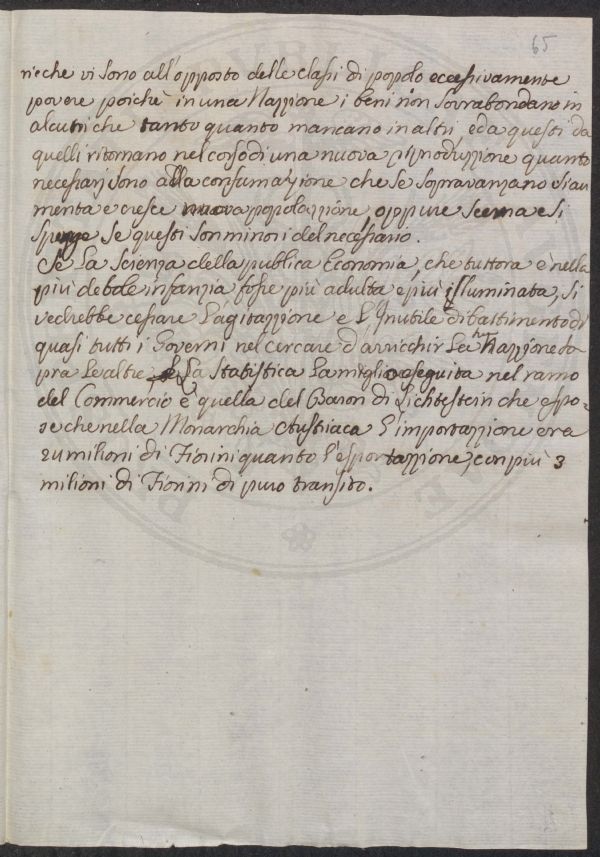 65
rieche vi sono all'opposto delle classi di popolo eccessivamente
povere poichè in una Nazzione i beni non sovrabondano in
alcuni che tanto quanto mancano in altri, e da questi da
quelli ritornano nel corso di una nuova riproduzzione quanto
necessarj sono alla consumazione che se sopravanzano si au
menta e cresce nuova popolazzione, oppure scema e si
spegge se questi son minori del necessario.
Se La Scienza della publica Economia, che tuttora è nella
più debole infanzia fosse più adulta e più illuminata, si
vedrebbe cessare L'agitazzione e L'Inutile dibattimento di
quasi tutti i Governi nel cercare d'arricchir La Nazzione so
pra Le altre. La Statistica La miglio eseguita nel ramo
del Commercio è quella del Baron di Lichtestein che espo-
se che nella Monarchia Austriaca L'importazzione era
milioni di Fiorini quanto L'esportazzione, con più 3
milioni di Fiorini di puro transito.